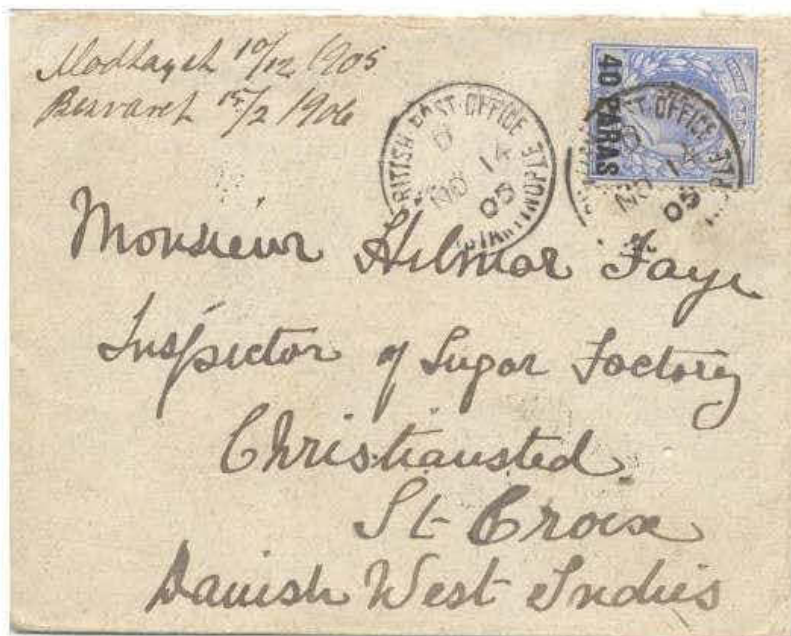 Modtaget 10/12 1905
Besvaret 15/2 1906
BRITISH POST OFFICE CONSTANTINOPLE
D
NO 14
05
40 PARAS
BRITISH POST OFFICE CONSTANTINOPLE
D
NO 14
05
Monsieur Hilmar Faye
Inspector of Sugar Factory
Christiansted
St Croix
Danish West Indies